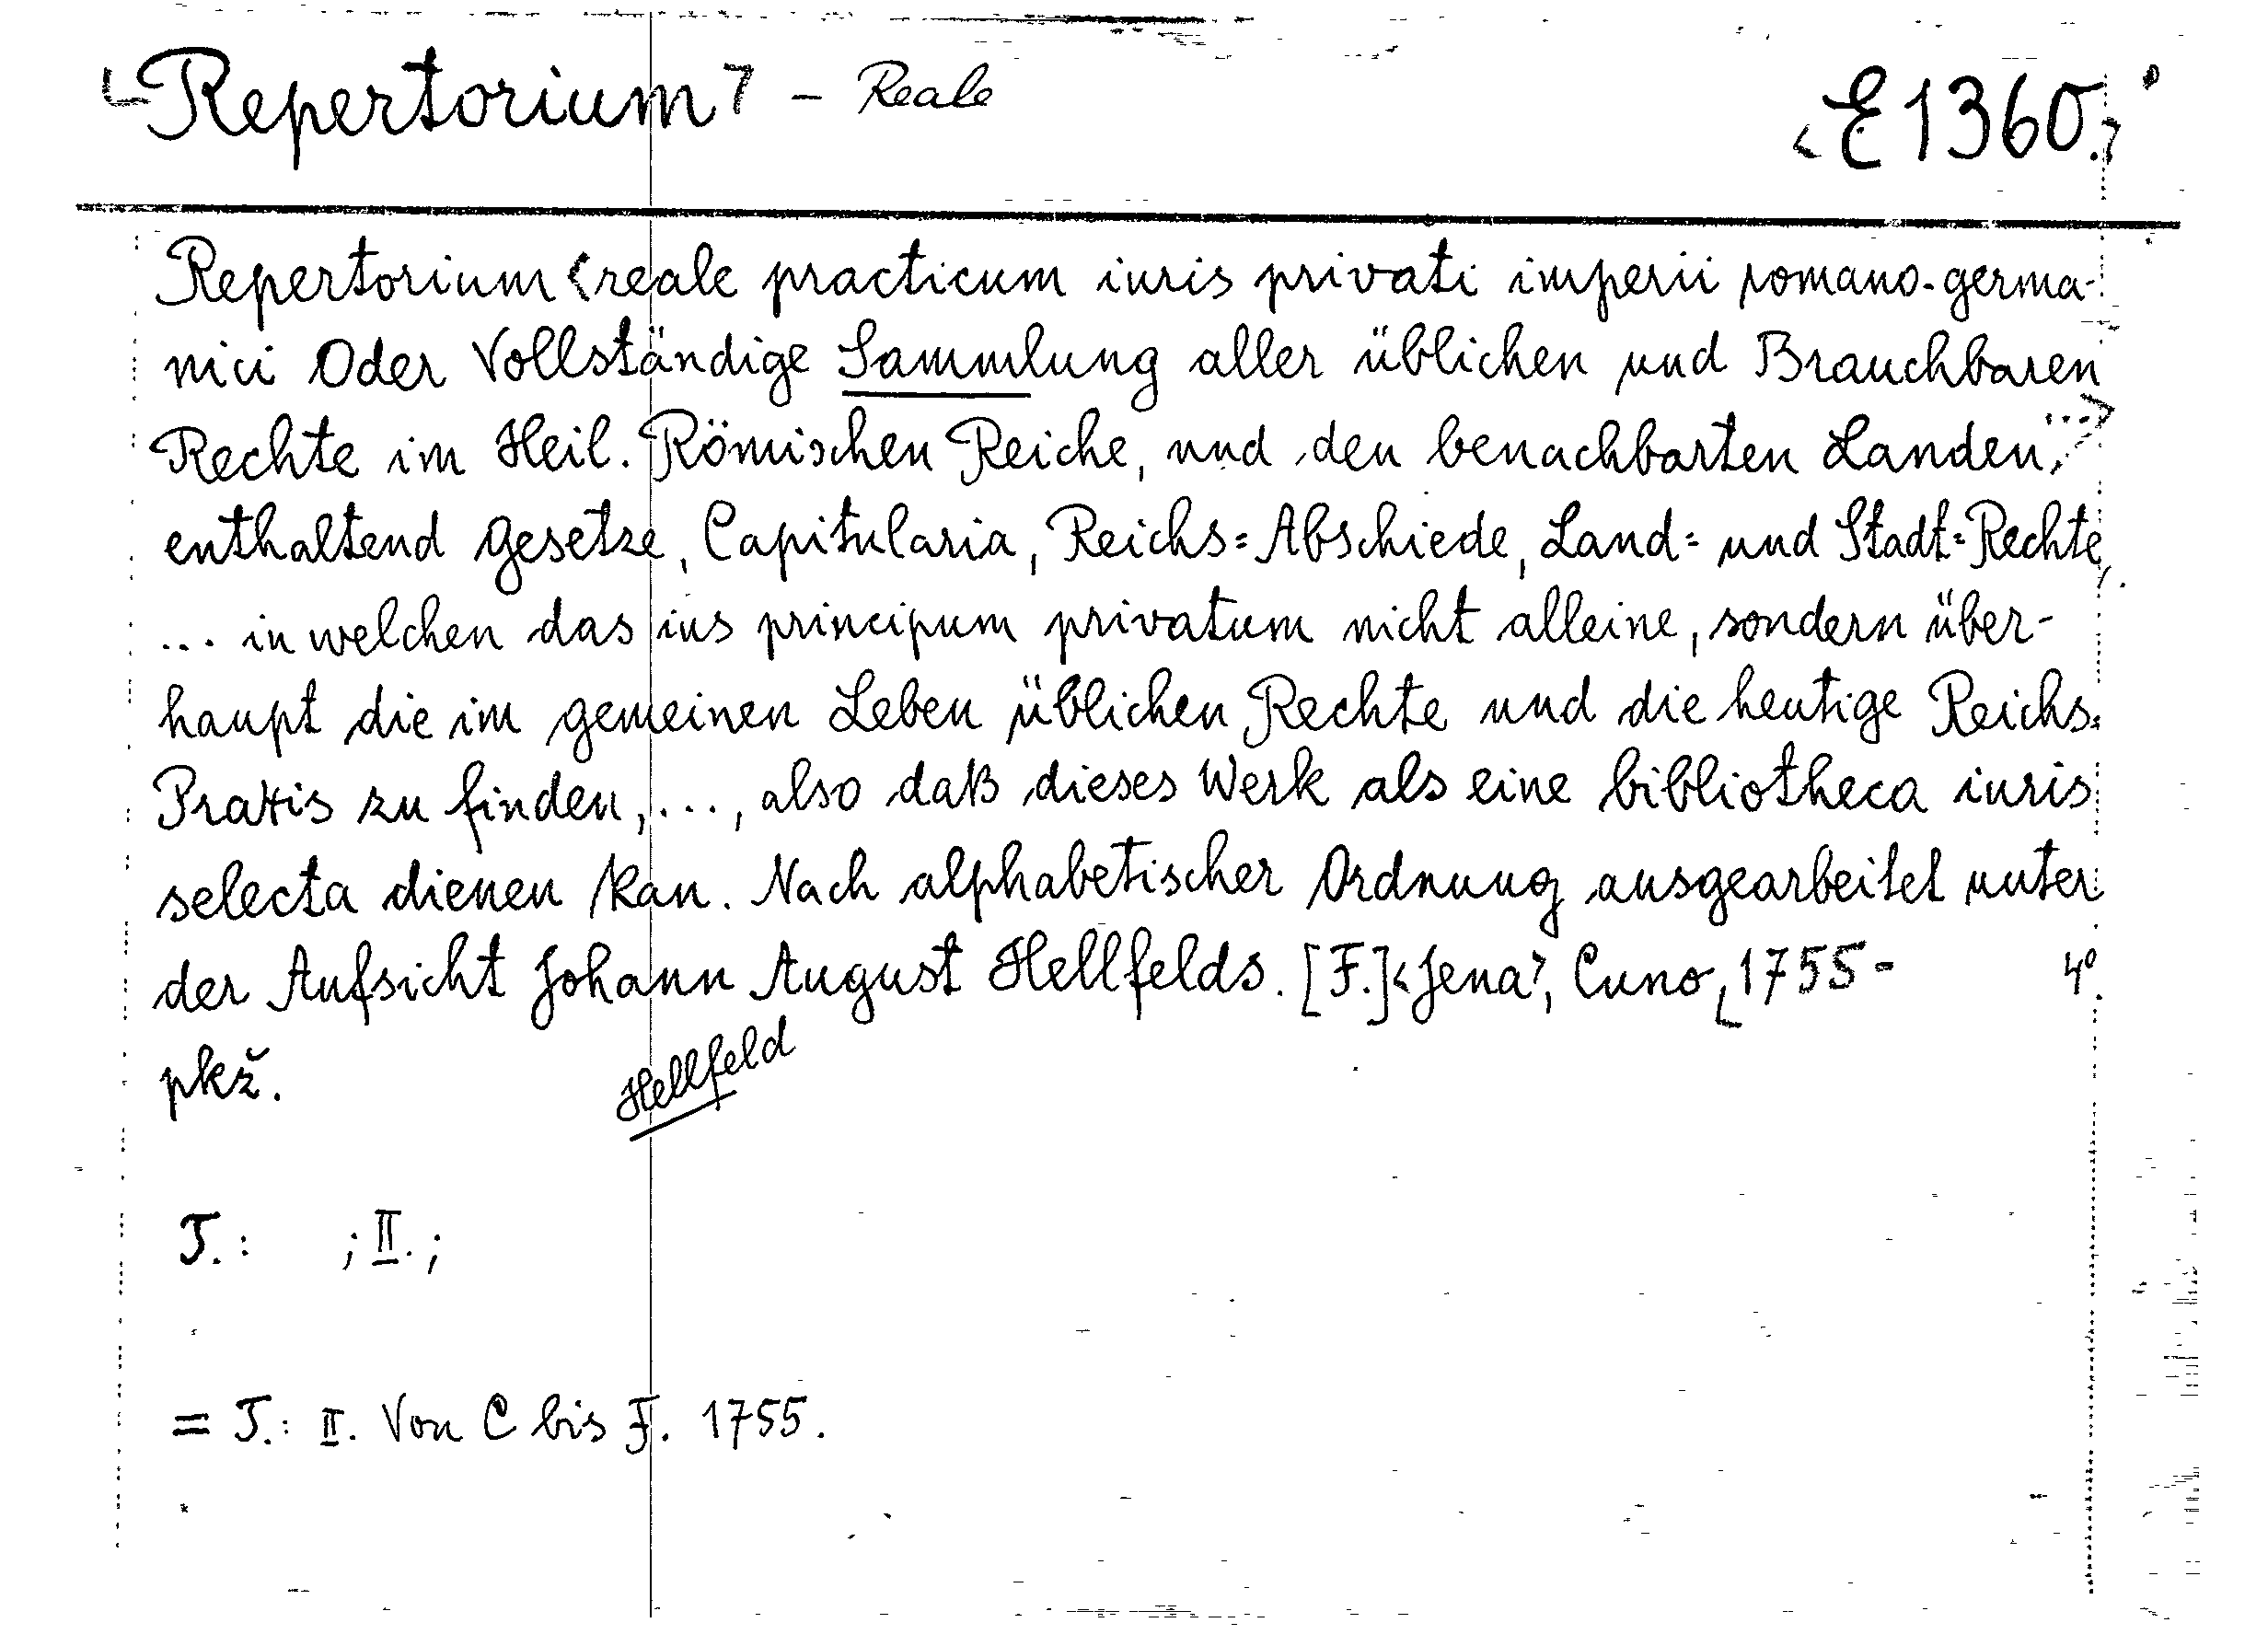 Repertorium - Reale E 1360.
Repertorium reale practicum iuris privati imperii romano-germa-
nici Oder Vollständige Sammlung aller üblichen und Brauchbaren
Rechte im Heil. Römischen Reiche, und den benachbarten Landen,
enthaltend Gesetze, Capitularia, Reichs=Abschiede, Land= und Stadt=Rechte
... in welchen das ius principum privatum nicht alleine, sondern über-
haupt die im gemeinen Leben üblichen Rechte und die heutige Reichs=
Praxis zu finden, ..., also daß dieses Werk als eine bibliotheca iuris
selecta dienen kan. Nach alphabetischer Ordnung ausgearbeitet unter
der Aufsicht Johann August Hellfelds. [F.] <Jena>, Cuno, 1755- 4°.
pkž.
Hellfeld
T.: ; II. ;
= T.: II. Von C bis F. 1755.